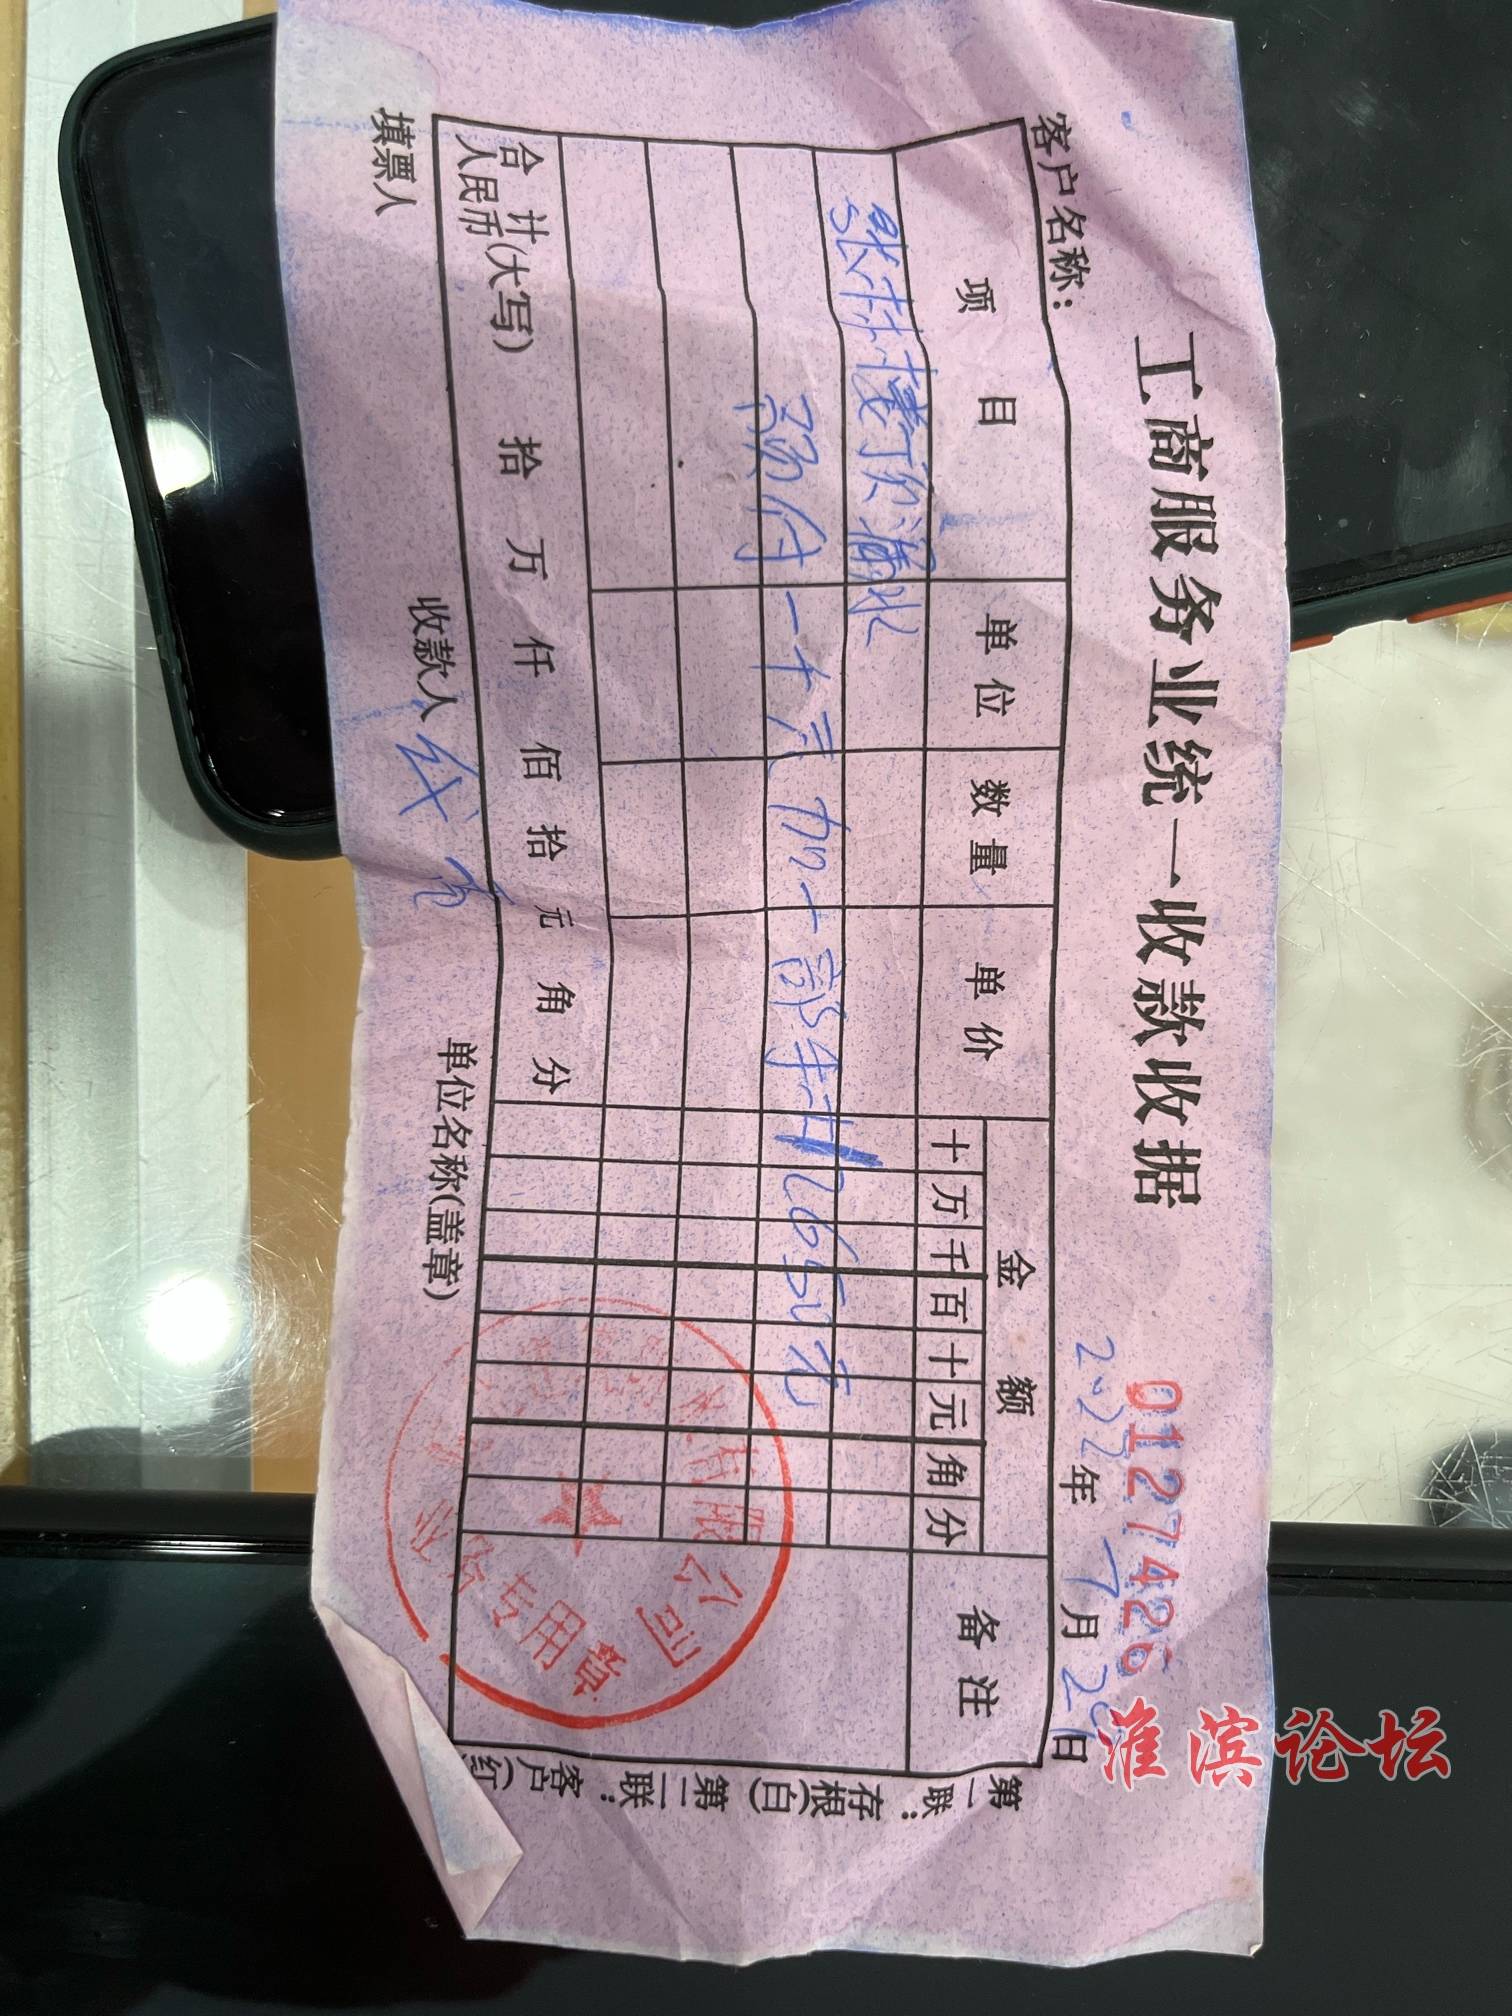 工商服务业统一收款收据
01274266
客户名称：
2022年7月28日
项目 单位 数量 单价 金额 备注
十万千百十元角分
张村楼顶漏水
需付一千元加一部手机2650元
合计
人民币(大写) 拾 万 仟 佰 拾 元 角 分
填票人 收款人 单位名称(盖章)
第一联：存根(白) 第二联：客户(红
有限公司
业务专用章
淮滨论坛